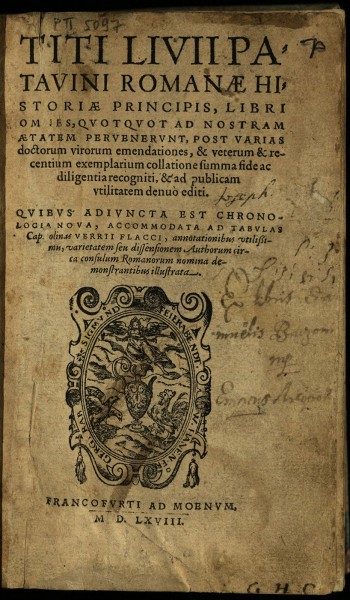 PII 5097
TITI LIVII PA-
TAVINI ROMANÆ HI-
STORIÆ PRINCIPIS, LIBRI
OMNES, QVOTQVOT AD NOSTRAM
ÆTATEM PERVENERVNT, POST VARIAS
doctorum virorum emendationes, & veterum & re-
centium exemplarium collatione summa fide ac
diligentia recogniti, & ad publicam
vtilitatem denuò editi.
Joseph
QVIBVS ADIVNCTA EST CHRONO-
LOGIA NOVA, ACCOMMODATA AD TABVLAS
Capitolinas VERRII FLACCI, annotationibus vtilissi-
mis, varietatem seu dissensionem Authorum cir-
ca consulum Romanorum nomina de-
monstrantibus illustrata.
SIGMVND FEIERABENDT
FRANCOFVRTI AD MOENVM.
M D LXVIII.
G H C